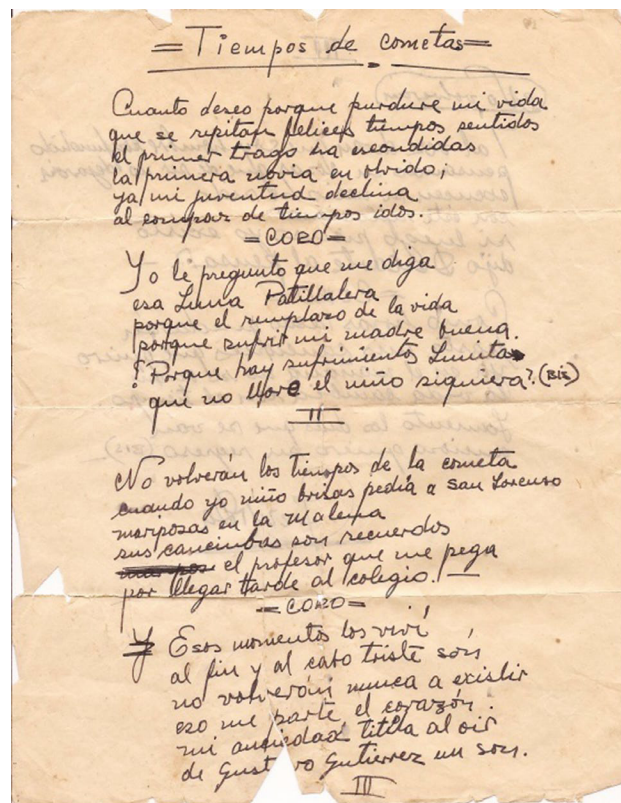 = Tiempos de cometas =
Cuanto deseo porque purdure mi vida
que se repitan felices tiempos sentidos
el primer trago ha escondidas
la primera novia en olvido;
ya mi juventud declina
al compaz de tiempos idos.
= CORO =
Yo le pregunto que me diga
esa Luna Patillalera
porque el remplazo de la vida
porque sufrir mi madre buena.
¿Porque hay sufrimientos Lunita
que no llore el niño siquiera? (BIS)
II
No volverán los tiempos de la cometa
cuando yo niño brisas pedía a san Lorenso
mariposas en la Malena
sus cancimbas son recuerdos
el profesor que me pega
por llegar tarde al colegio. —
= CORO =
Y Esos momentos los viví
al fin y al cabo triste són
no volverán nunca a existir
eso me parte el corazón.
mi ansiedad titila al oir
de Gustavo Gutierrez un son.
III